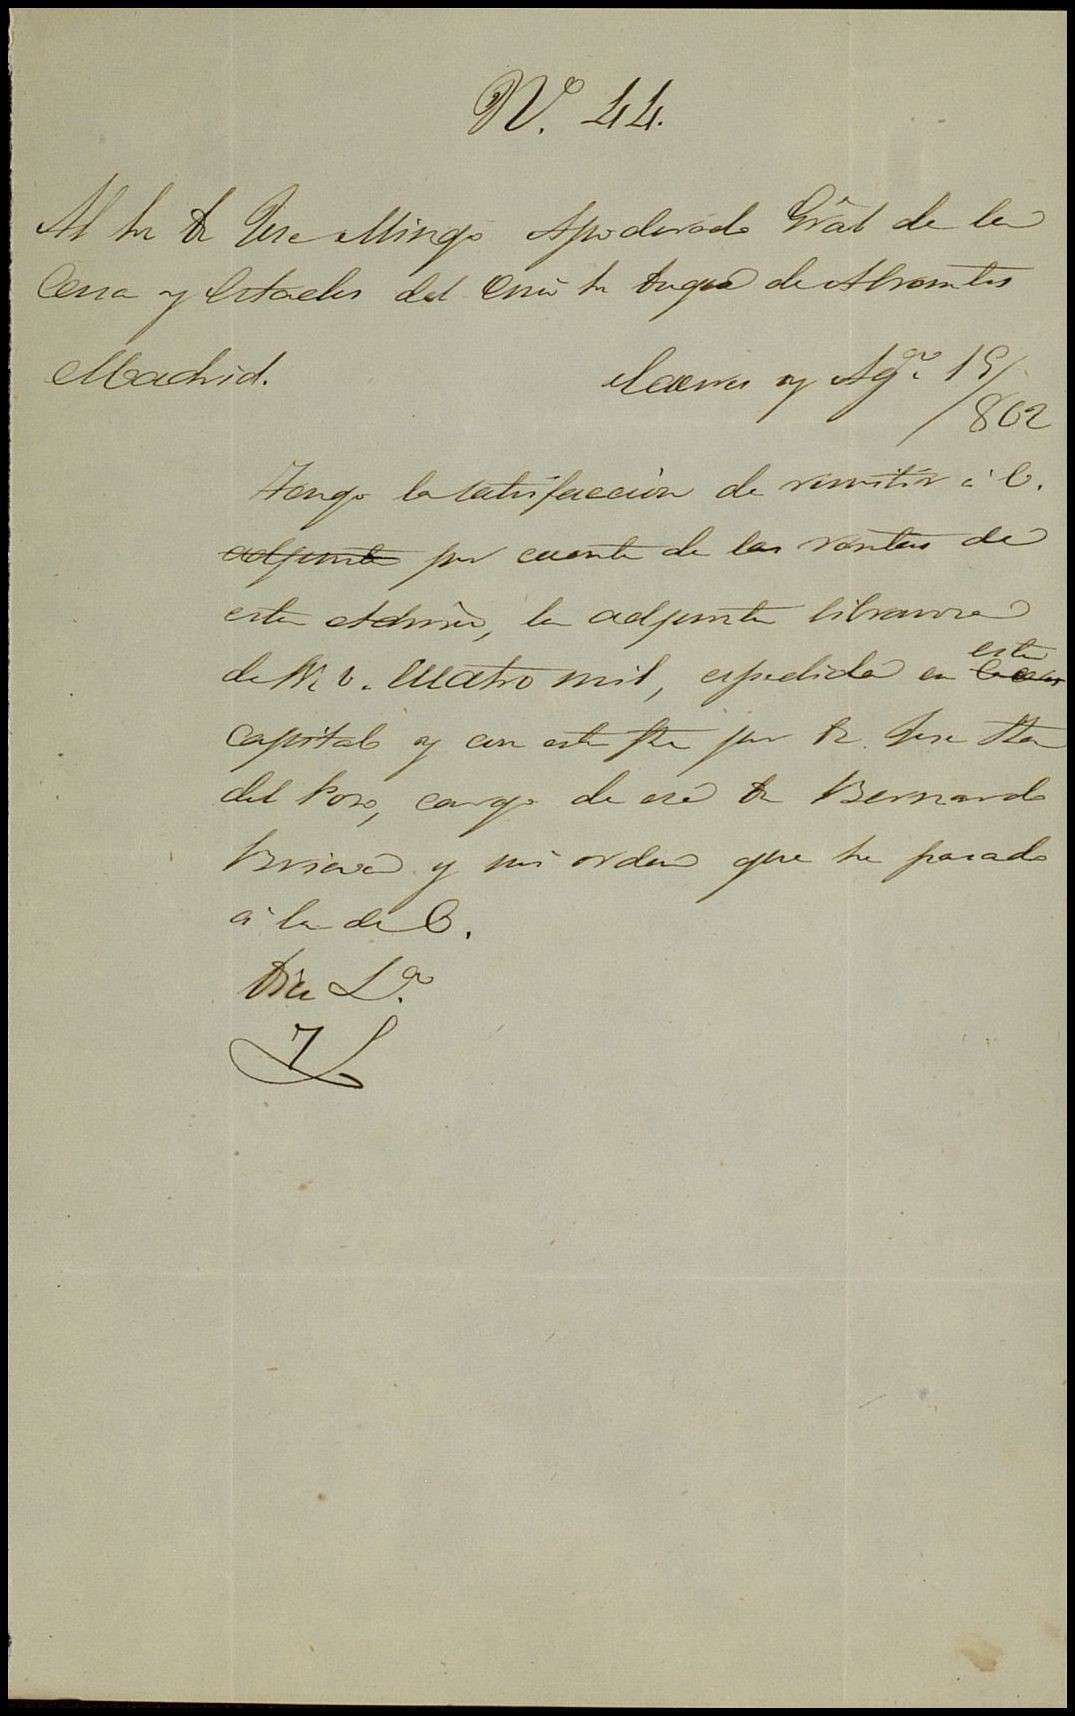 Nº. 44.
Al Sr Dn Jose Mingo Apoderado Gral de la
Casa y Estados del Exmo Sr Duque de Abrantes
Madrid.
Caceres y Agto. 19/
862
Tengo la satisfaccion de remitir á V.
adjunta por cuenta de las rentas de
esta Admon, la adjunta libranza
de Rs. v. Cuatro mil, espedida en esta
capital y con esta fha por Dn Jose
del Pozo, cargo de ese Dn Bernardo
y mi orden que he pasado
á la de V.
Dios